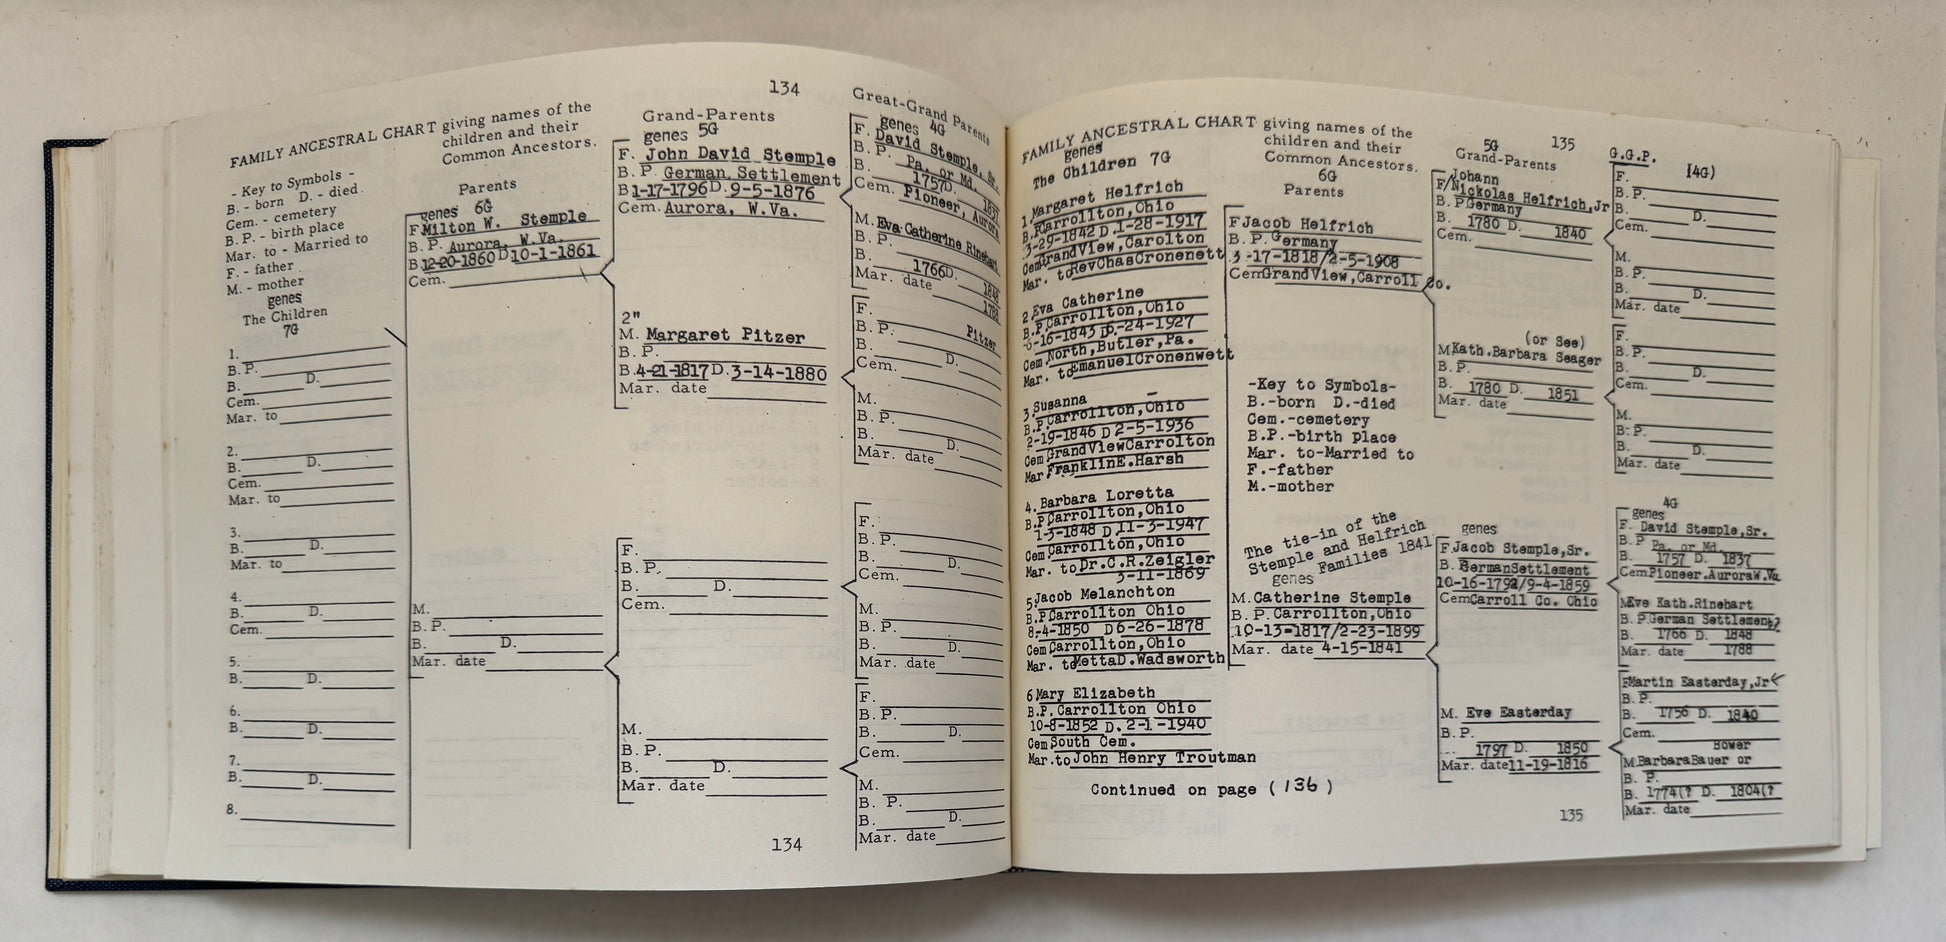 134
FAMILY ANCESTRAL CHART giving names of the
children and their
Common Ancestors.
- Key to Symbols -
B. - born D. - died.
Cem. - cemetery
B. P. - birth place
Mar. to - Married to
F. - father
M. - mother
genes
The Children
7G
1.
B. P.
B. D.
Cem.
Mar. to
2.
B. D.
Cem.
Mar. to
3.
B. D.
Mar. to
4.
B. D.
Cem.
5.
B. D.
6.
B. D.
7.
B. D.
8.
Parents
genes 6G
F. Milton W. Stemple
B. P. Aurora, W.Va.
B 12-20-1860 D 10-1-1861
Cem.
M.
B. P.
B. D.
Mar. date
Grand-Parents
genes 5G
F. John David Stemple
B. P. German Settlement
B 1-17-1796 D. 9-5-1876
Cem. Aurora, W.Va.
2"
M. Margaret Pitzer
B. P.
B. 4-21-1817 D. 3-14-1880
Mar. date
F.
B. P.
B. D.
Cem.
M.
B. P.
B. D.
Mar. date
Great-Grand Parents
genes 4G
F. David Stemple, Sr.
B. P. Pa. or Md.
B. 1757 D. 1837
Cem. Pioneer, Aurora
M. Eva Catherine Rinehart
B. P.
B. 1766 D. 1848
Mar. date 1788
F. Pitzer
B. P.
B. D.
Cem.
M.
B. P.
B. D.
Mar. date
F.
B. P.
B. D.
Cem.
M.
B. P.
B. D.
Mar. date
F.
B. P.
B. D.
Cem.
M.
B. P.
B. D.
Mar. date
134
135
FAMILY ANCESTRAL CHART giving names of the
children and their
Common Ancestors.
genes
The Children 7G
1. Margaret Helfrich
B.P. Carrollton, Ohio
3-29-1842 D. 1-28-1917
Cem GrandView, Carolton
Mar. to Rev Chas Cronenett
2. Eva Catherine
B.P. Carrollton, Ohio
-16-1843 D. 6-24-1927
Cem. North, Butler, Pa.
Mar. to Emanuel Cronenwett
3. Susanna
B.P. Carrollton, Ohio
2-19-1846 D 2-5-1936
Cem GrandView Carrolton
Mar Franklin E. Harsh
4. Barbara Loretta
B.P Carrollton, Ohio
1-3-1848 D. 11-3-1947
Cem Carrollton, Ohio
Mar. to Dr. C.R. Zeigler
3-11-1869
5. Jacob Melanchton
B.P Carrollton Ohio
8-4-1850 D 6-26-1878
Cem Carrollton, Ohio
Mar. to Metta D. Wadsworth
6 Mary Elizabeth
B.P. Carrollton Ohio
10-8-1852 D. 2-1-1940
Cem South Cem.
Mar. to John Henry Troutman
Continued on page (136)
6G
Parents
F Jacob Helfrich
B. P. Germany
3 -17-1818/2-5-1908
Cem GrandView, Carroll Co.
-Key to Symbols-
B.-born D.-died
Cem.-cemetery
B.P.-birth place
Mar. to-Married to
F.-father
M.-mother
The tie-in of the
Stemple and Helfrich
Families 1841
genes
M. Catherine Stemple
B. P. Carrollton, Ohio
10-13-1817/2-23-1899
Mar. date 4-15-1841
5G
Grand-Parents
Johann
F/Nickolas Helfrich, Jr
B. P. Germany
B. 1780 D. 1840
Cem.
(or See)
M. Kath. Barbara Seager
B. P.
B. 1780 D. 1851
Mar. date
genes
F. Jacob Stemple, Sr.
B. German Settlement
10-16-179 /9-4-1859
Cem Carroll Co. Ohio
M. Eve Easterday
B. P.
1797 D. 1850
Mar. date 11-19-1816
G.G.P. (4G)
F.
B. P.
B. D.
Cem.
M.
B. P.
B. D.
Mar. date
F.
B. P.
B. D.
Cem.
M.
B. P.
B. D.
Mar. date
4G
genes
F. David Stemple, Sr.
B. P Pa. or Md.
B. 1757 D. 1837
Cem Pioneer. Aurora W. Va
M Eve Kath. Rinehart
B. P. German Settlement?
B. 1766 D. 1848
Mar. date 1788
F Martin Easterday, Jr
B. P.
B. 1756 D. 1840
Cem.
Bower
M. Barbara Bauer or
B. P.
B. 1774(? D. 1804(?
Mar. date
135